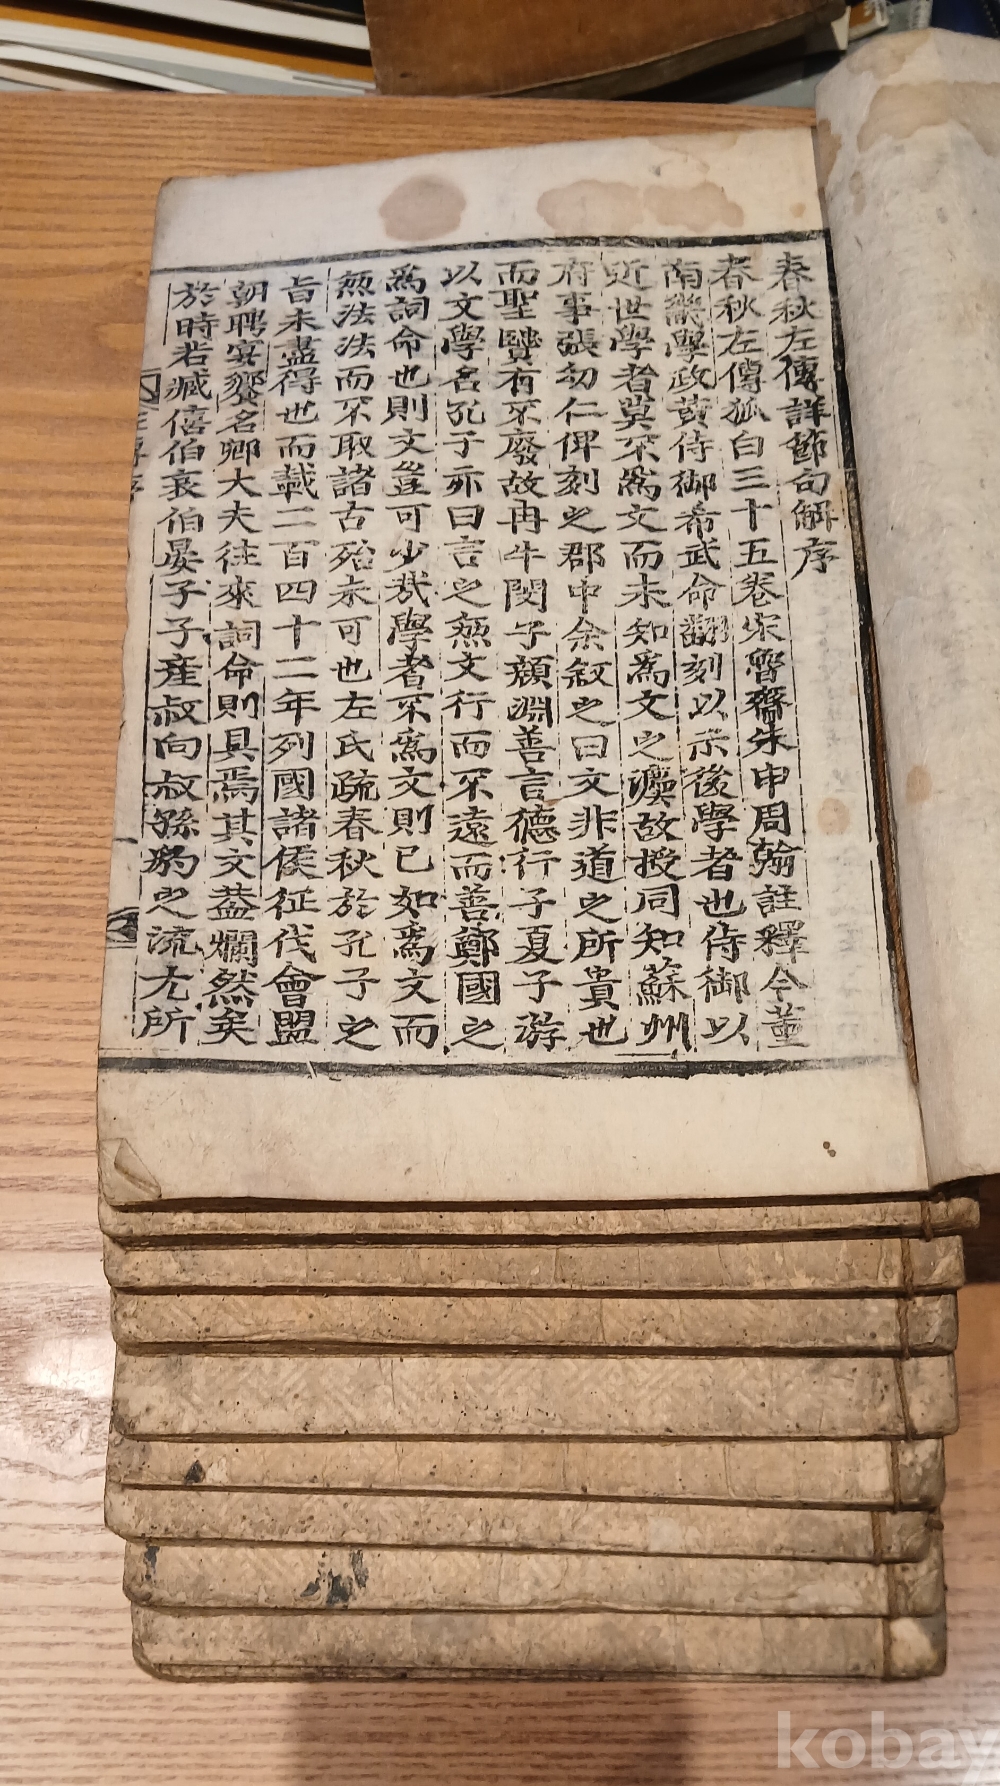 春秋左傳詳節句解序
春秋左傳狐白三十五卷宋魯齋朱申周翰註釋今董
南畿學政黃侍御希武命翻刻以示後學者也侍御以
近世學者莫不爲文而未知爲文之灋故授同知蘇州
府事張幼仁俾刻之郡中余敍之曰文非道之所貴也
而聖賢有不廢故冉牛閔子顏淵善言德行子夏子游
以文學名孔子亦曰言之無文行而不遠而善鄭國之
爲詞命也則文豈可少哉學者不爲文則已如爲文而
無法法而不取諸古殆未可也左氏疏春秋於孔子之
旨未盡得也而載二百四十二年列國諸侯征伐會盟
朝聘宴饗名卿大夫往來詞命則具焉其文蓋爛然矣
於時若臧僖伯哀伯晏子子產叔向叔孫豹之流尤所
kobay